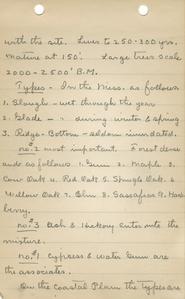 with the site. Lives to 250-300 yrs.
Mature at 150'. Large trees scale
2000-2500' B.M.
Types - In the Miss. as follows
1. Slough - wet through the year
2. Glade - " during winter & spring
3. Ridge-Bottom - seldom inundated.
no. 2 most important. Forest dense
and as follows 1. Gum 2. Maple 3.
Cow Oak 4. Red Oak 5. Spanish Oak 6.
Willow Oak 7. Elm 8. Sassafras 9. Hack
berry.
no. 3 Ash & Hickory enter into the
mixture.
no. 1 Cypress & Water Gum are
the associates.
On the Coastal Plain the types are